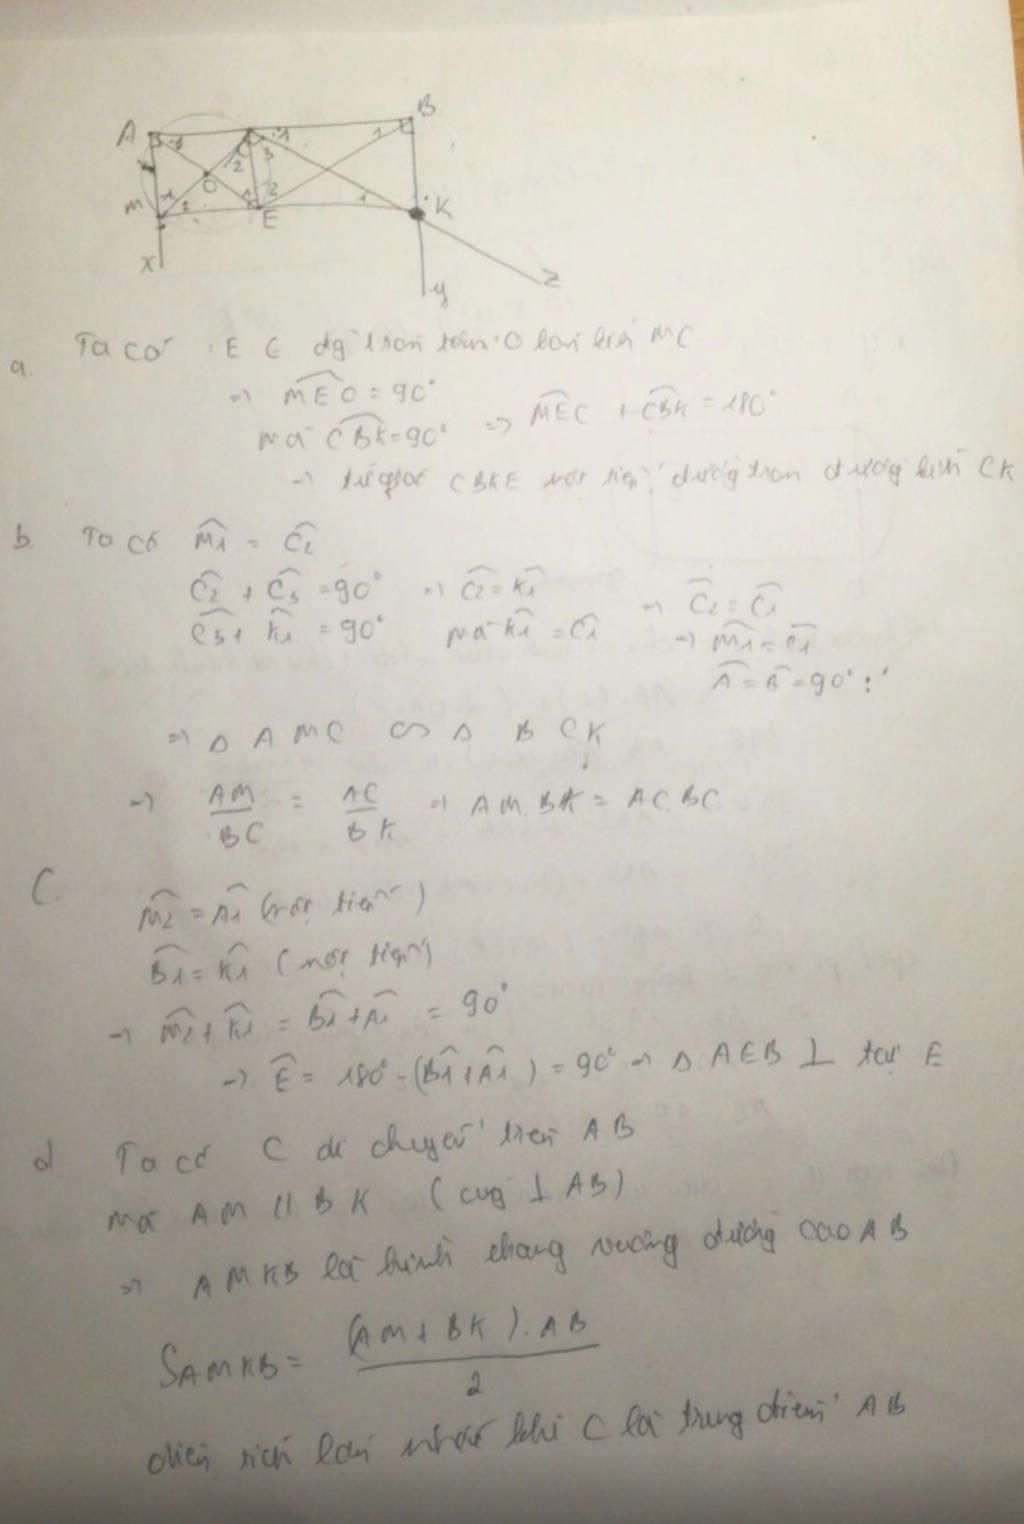 A B
1 1 1
C 3
2
O
1 1 2 1
M 2 E K
x
y
z
a. Ta có E ∈ đg tròn tâm O MC
=> MEC = 90°
mà CBK = 90° => MEC + CBK = 180°
=> tứ giác CBKE nội tiếp đường tròn đường kính CK
b. Ta có M1 = C2
C2 + C3 = 90° => C2 = K1 => C2 = C1
C3 + K1 = 90° mà K1 = C1 => M1 = C1
A = B = 90°
=> Δ AMC ∽ Δ BCK
=> AM/BC = AC/BK => AM.BK = AC.BC
C.
M2 = A1 (nội tiếp)
B1 = K1 (nội tiếp)
=> M2 + K1 = B1 + A1 = 90°
=> E = 180° - (B1 + A1) = 90° => Δ AEB ⊥ tại E
d. Ta có C di chuyển trên AB
mà AM // BK (cùg ⊥ AB)
=> AMKB là hình thang vuông đường cao AB
SAMKB = (AM + BK).AB / 2
diện tích lớn nhất khi C là trung điểm AB